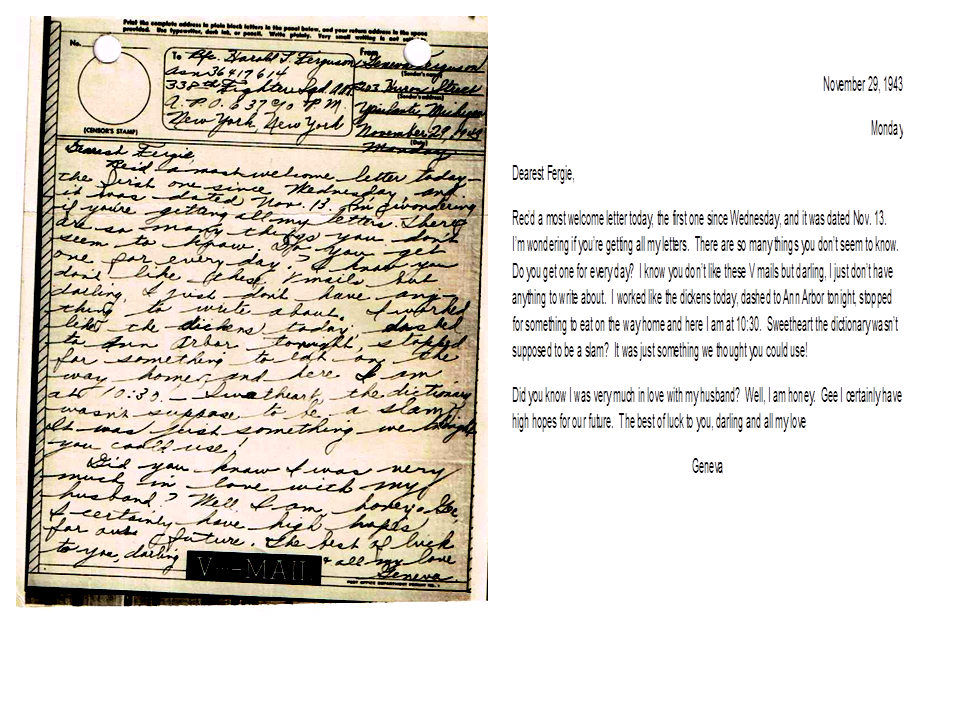 Print the complete address in plain block letters in the panel below, and your return address in the space
provided. Use typewriter, dark ink, or pencil. Write plainly. Very small writing is not
No.
(CENSOR'S STAMP)
To Pfc. Harold L. Ferguson
asn 36417614
338th Fighter Sqd. AAF
A.P.O. 637 c/o P.M.
New York, New York
From
Geneva Ferguson
(Sender's name)
Street
(Sender's address)
Ypsilanti, Michigan
November 29, 1943
(Date)
Monday
Dearest Fergie,
Rec'd a most welcome letter today -
the first one since Wednesday and
it was dated Nov. 13. I'm wondering
if you're getting all my letters. There
are so many things you don't
seem to know. Do you get
one for every day? I know you
don't like these V mails but
darling, I just don't have any-
thing to write about. I worked
like the dickens today, dashed
to Ann Arbor tonight, stopped
for something to eat on the
way home, and here I am
at 10:30. - Sweetheart, the dictionary
wasn't suppose to be a slam?
It was just something we thought
you could use!
Did you know I was very
much in love with my
husband? Well I am, honey. Gee,
I certainly have high hopes
for our future. The best of luck
to you, darling & all my love
Geneva
V···-MAIL
POST OFFICE DEPARTMENT PERMIT NO.
November 29, 1943
Monday
Dearest Fergie,
Rec'd a most welcome letter today, the first one since Wednesday, and it was dated Nov. 13.
I'm wondering if you're getting all my letters. There are so many things you don't seem to know.
Do you get one for every day? I know you don't like these V mails but darling, I just don't have
anything to write about. I worked like the dickens today, dashed to Ann Arbor tonight, stopped
for something to eat on the way home and here I am at 10:30. Sweetheart the dictionary wasn't
supposed to be a slam? It was just something we thought you could use!
Did you know I was very much in love with my husband? Well, I am honey. Gee I certainly have
high hopes for our future. The best of luck to you, darling and all my love
Geneva